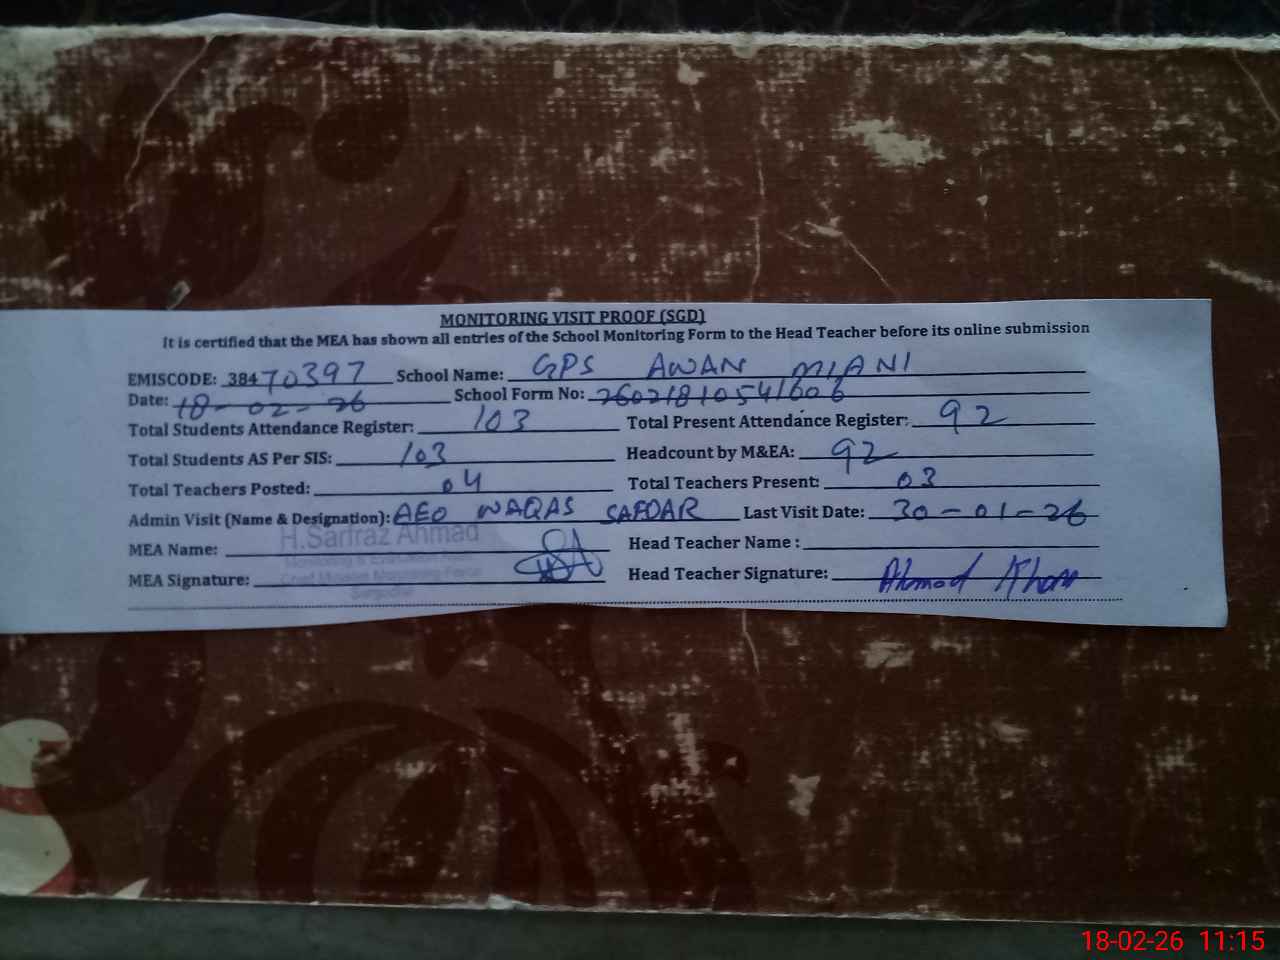 MONITORING VISIT PROOF (SGD)
It is certified that the MEA has shown all entries of the School Monitoring Form to the Head Teacher before its online submission
EMISCODE: 38470397 School Name: GPS AWAN MIANI
Date: 18-02-26 School Form No: 26021810541606
Total Students Attendance Register: 103 Total Present Attendance Register: 92
Total Students AS Per SIS: 103 Headcount by M&EA: 92
Total Teachers Posted: 04 Total Teachers Present: 03
Admin Visit (Name & Designation): AEO WAQAS SAFDAR Last Visit Date: 30-01-26
MEA Name: H.Sarfraz Ahmad Head Teacher Name :
Monitoring & Evaluation
MEA Signature: Chief Minister Monitoring Force Head Teacher Signature: Ahmad Khan
Sargodha
18-02-26 11:15